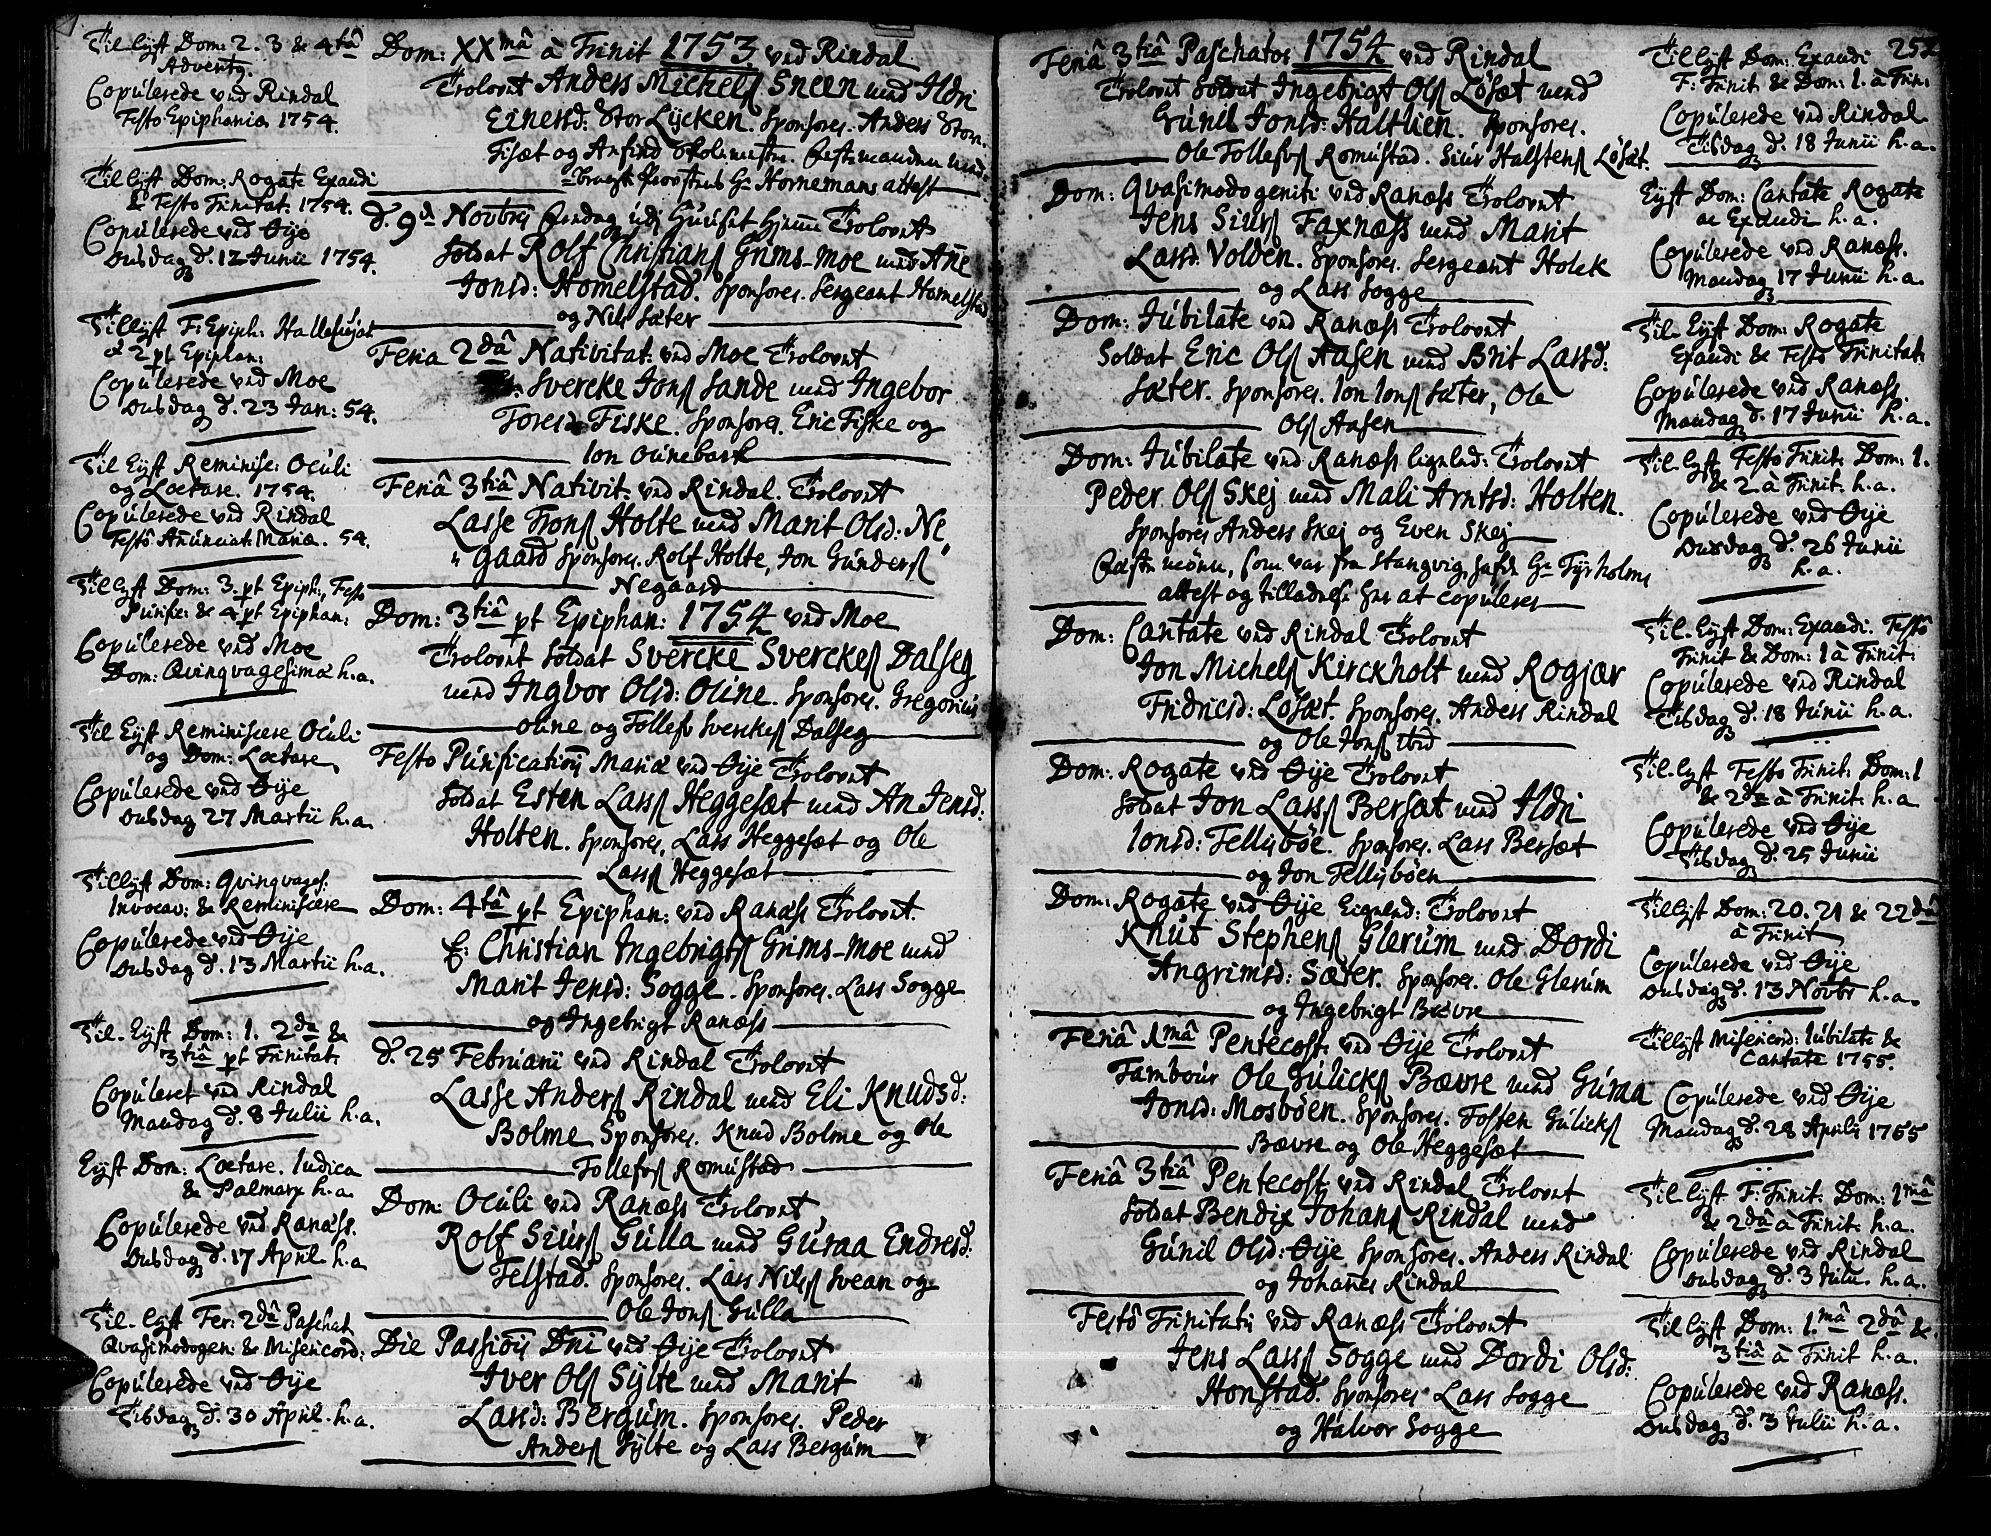 Til lyst Dom: 2. 3 & 4tâ
Advent9.
Copúlerede ved Rindal
Festo Epiphaniæ 1754.
Til lyst Dom: Rogate Exaudi
& Festo Trinitat: 1754.
Copúlerede ved Øije
Onsdag d. 12 Junii 1754.
Til lyst F: Epiph:
& 2 pt Epiphan:
Copúlerede ved Moe
Onsdag d. 23 Jan: 54.
Til lyst Reminisc: Ocúli
og Lœtare. 1754.
Copúlerede ved Rindal
Festô Anúnciat: Mariæ. 54.
Til lyst Dom: 3. pt Epiph:, Festo
Purific: & 4 pt Epiphan:
Copúlerede ved Moe
Dom: Qvinqvagesimæ h.a.
Til lyst Reminiscere Ocúli
og Dom: Lœtare
Copúlerede ved Øije
Onsdag 27 Martii h.a.
Til lyst Dom: Qvinqvages:
Invocav: & Reminiscere
Copúlerede ved Øije
Onsdag d. 13 Martii h.a.
Til lyst Dom: 1. 2da &
3tiâ pt Trinitat:
Copúleret ved Rindal
Mandag d. 8 Julii h.a.
Lyst Dom: Lœtare. Iudica
& Palmarx h.a.
Copúlerede ved Ranæss.
Onsdag d. 17 April h.a
Til lyst Fer: 2dâ Paschat
Qvasimodogen: & Misericord:
Copúlerede ved Øije
Tisdag d. 30 April. h.a.
Dom: XXmâ à Trinit 1753 ved Rindal
Trolovet Anders Michelss Sneen med Ildri
Einersd: Stor Lÿcken. Sponsores. Anders Stor-
Fisæt og Arfind Skolemestr.
Provstens Hr Hornemans attest
d. 9d Novbris Trolovet
Soldat Rolf Christians Grims-moe med Ane
Jonsd: Homelstad. Sponsores. Sergeant Homelstad
og Nils Sæter
Feria 2dâ Nativitat: ved Moe Trolovet
Svercke Jonss Sande med Ingebor
Toresd: Fiske. Sponsores. Eric Fiske og
Ion Oúnebark
Feriâ 3tiâ Nativit: ved Rindal. Trolovet
Lasse Tronss Holte med Marit Olsd: Ne
gaard Sponsores. Rolf Holte, Jon Gúnderss
Negaard
Dom: 3tiâ pt Epiphan: 1754 ved Moe
Trolovet Soldat Svercke Sverckess Dalseg
med Ingbor Olsd: Oline. Sponsores. Gregorius
Oune og Tollef Sverckess Dalseg
Festo Púrificationis Mariæ ved Øije Trolovet
Soldat Esten Larss Heggesæt med An Jensd:
Holten. Sponsores. Lars Heggesæt og Ole
Larss Heggesæt
Dom: 4tâ pt Epiphan: ved Ranæss Trolovet.
E: Christian Ingebrigtss Grims-moe med
Marit Jensd: Sogge. Sponsores. Lars Sogge
og Ingebrigt Ranæss
d. 25 Februarii ved Rindal Trolovet
Lasse Anderss Rindal med Eli Knudsd:
Bolme Sponsores. Knud Bolme og Ole
Tollefss Romústad
Dom: Ocúli ved Ranæss Trolovet
Rolf Siurss Gúlla med Gúraa Endresd:
Telstad. Sponsores. Lars Nilss Svean og
Ole Jonss Gúlla
Die Passionis Dni ved Øije Trolovet
Iver Olss Sÿlte med Marit
Larsd: Bergúm. Sponsores. Peder
Anderss Sÿlte og Lars Bergúm
Feriâ 3tiâ Paschatos 1754 ved Rindal
Trolovet Soldat Ingebrigt Olss Løsæt med
Gúnil Jonsd: Haltlien. Sponsores.
Ole Tollefss Romústad. Siur Halstenss Løsæt.
Dom: Qvasimodogeniti ved Ranæss Trolovet
Jens Siurss Faxnæss med Marit
Larsd: Volden. Sponsores. Sergeant Holck
og Lars Sogge
Dom: Iúbilate ved Ranæss Trolovet
Soldat Eric Olss Aasen med Brit Larsd:
Sæter. Sponsores. Ion Ionss Sæter, Ole
Olss Aasen
Dom: Iúbilate ved Ranæss ligeled: Trolovet
Peder Olss Skej med Mali Arntsd: Holten.
Sponsores Anders Skej og Even Skej
som var fra Stangvig, hafde Hr Tyrholms
attest og tilladelse her at copúleres
Dom: Cantate ved Rindal Trolovet
Jon Michelss Kirckholt med Rogjær
Fridricsd: Løsæt. Sponsores. Anders Rindal
og Ole Jonss ibid
Dom: Rogate ved Øije Trolovet
Soldat Jon Larss Bersæt med Ildri
Ionsd: Tellisbøe. Sponsores. Lars Bersæt
og Jon Tellisbøen
Dom: Rogate ved Øije Ligeled: Trolovet
Knút Stephenss Glerúm med Dordi
Angrimsd: Sæter. Sponsores. Ole Glerúm
og Ingebrigt Bævre
Feriâ 1mâ Pentecost: ved Øije Trolovet
Tamboúr Ole Gúlickss Bævre med Gúraa
Jonsd: Mosbøen. Sponsores. Tosten Gúlickss
Bævre og Ole Heggesæt
Feriâ 3tiâ Pentecost: ved Rindal Trolovet
Soldat Bendix Johanss Rindal med
Gúnil Olsd: Øije Sponsores. Anders Rindal
og Johanes Rindal
Festô Trinitatis ved Ranæss Trolovet
Jens Larss Sogge med Dordi Olsd:
Honstad. Sponsores Lars Sogge
og Halvor Sogge
252
Til lyst Dom: Exaudi
F: Trinit & Dom: 1. à Trin:
Copúlerede ved Rindal
Tisdag d. 18 Junii h.a.
Lyst Dom: Cantate Rogate
ac Exaudi h.a.
Copúlerede ved Ranæss.
Mandag 17 Junii h.a.
Til lyst Dom: Rogate
Exaudi & Festo Trinitat:
Copúlerede ved Ranæss.
Mandag d. 17 Junii h.a.
Til lyst Festo Trinit: Dom: 1.
& 2. à Trinit: h.a.
Copúlerede ved Øije
Onsdag d. 26 Junii
h.a.
Til lyst Dom: Exaudi. Festô
Trinit & Dom: 1 à Trinit:
Copúlerede ved Rindal
Tisdag d. 18 Junii h.a.
Til lyst Festo Trinit: Dom: 1
& 2da à Trinit: h.a
Copúlerede ved Øije
Tisdag d. 25 Junii
Til lyst Dom: 20. 21 & 22dâ
à Trinit
Copúlerede ved Øije
Onsdag d. 13 Novbr h.a.
Til lyst Misericord: Iúbilate &
Cantate 1755.
Copúlerede ved Øije
Mandag d. 28 Aprilis 1755
Til lyst F: Trinit: Dom: 1mâ
& 2dâ à Trinit: h.a.
Copúlerede ved Rindal
Onsdag d. 3 Julii. h.a.
Til lyst Dom: 1.mâ 2dâ &
3tiâ à Trinit h.a.
Copúlerede ved Ranæss.
Onsdag d. 3 Julii h.a.